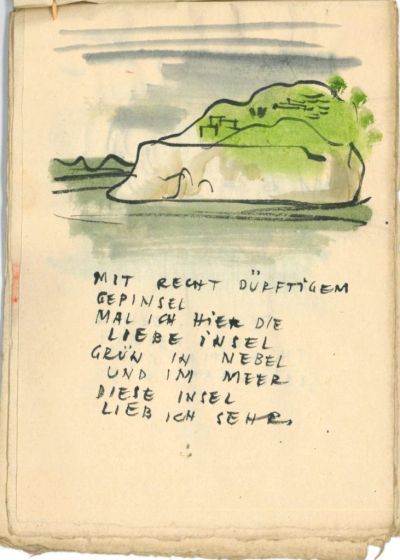 MIT RECHT DÜRFTIGEM
GEPINSEL
MAL ICH HIER DIE
LIEBE INSEL
GRÜN IN NEBEL
UND IM MEER
DIESE INSEL
LIEB ICH SEHR